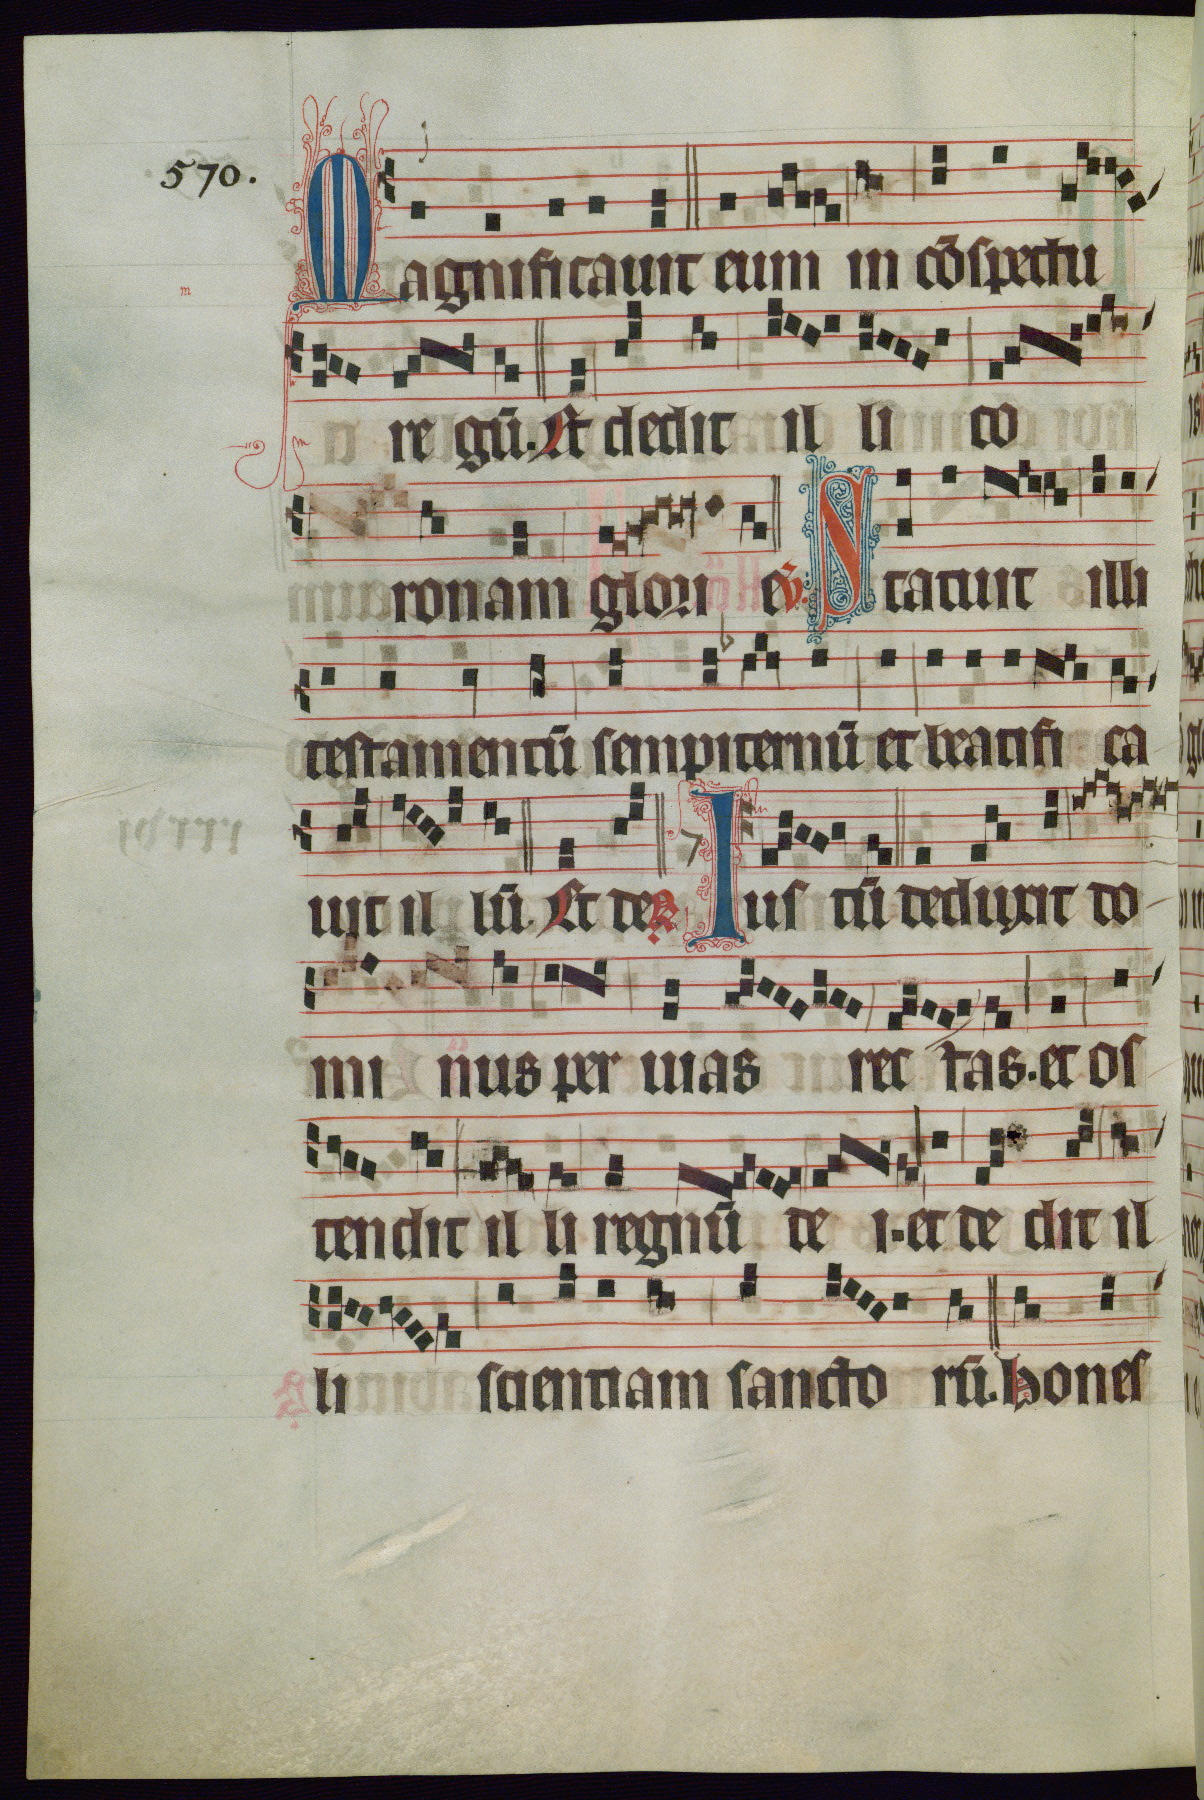 570.
Magnificauit eum in cōspectu
re gū. Et dedit il li co
ronam glori e. ꝟ. Statuit illi
testamentū sempiternū et beatifi ca
uit il lū. Et de ℟. Ius tū deduxit do
mi nus per uias rec tas. et os
tendit il li regnū de i. et de dit il
li scientiam sancto rū. hones